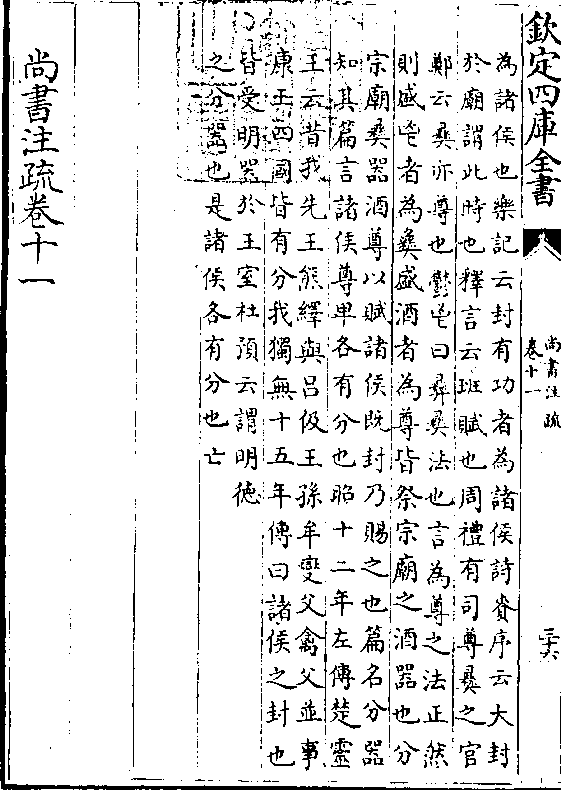 欽定四庫全書
尚書注疏
卷十一
三十六
為諸侯也樂記云封有功者為諸侯詩賚序云大封
於廟謂此時也釋言云班賦也周禮有司尊彝之官
鄭云彝亦尊也鬱鬯曰彝彝法也言為尊之法正然
則盛鬯者為彝盛酒者為尊皆祭宗廟之酒器也分
宗廟彝器酒尊以賦諸侯既封乃賜之也篇名分器
知其篇言諸侯尊卑各有分也昭十二年左傳楚靈
王云昔我先王熊繹與呂伋王孫牟燮父禽父並事
康王四國皆有分我獨無十五年傳曰諸侯之封也
皆受明器於王室杜預云謂明德
之分器也是諸侯各有分也亡
尚書注疏卷十一